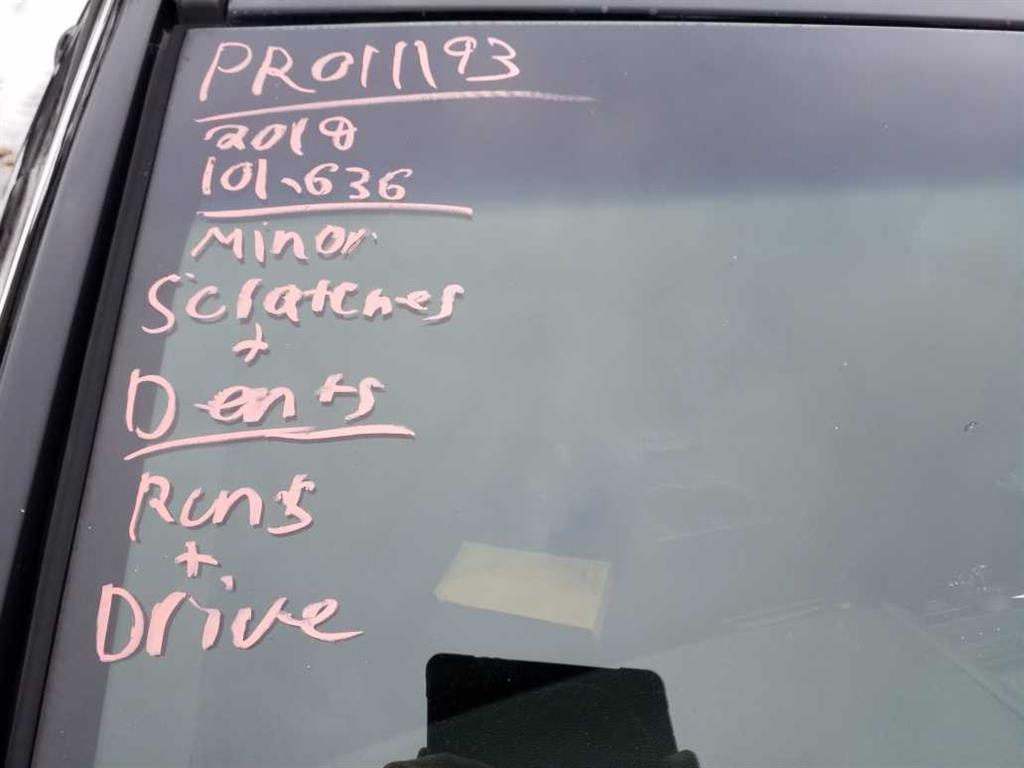 PRO11193
2018
101,636
Minor
Scratches
+
Dents
Runs
+
Drive